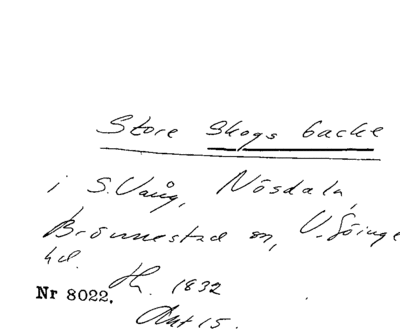 Store Skogs backe
i S. Vång, Nösdala,
Brönnestad sn, V. Göinge
hd.
Nr 8022. Hh. 1832
Akt 15.